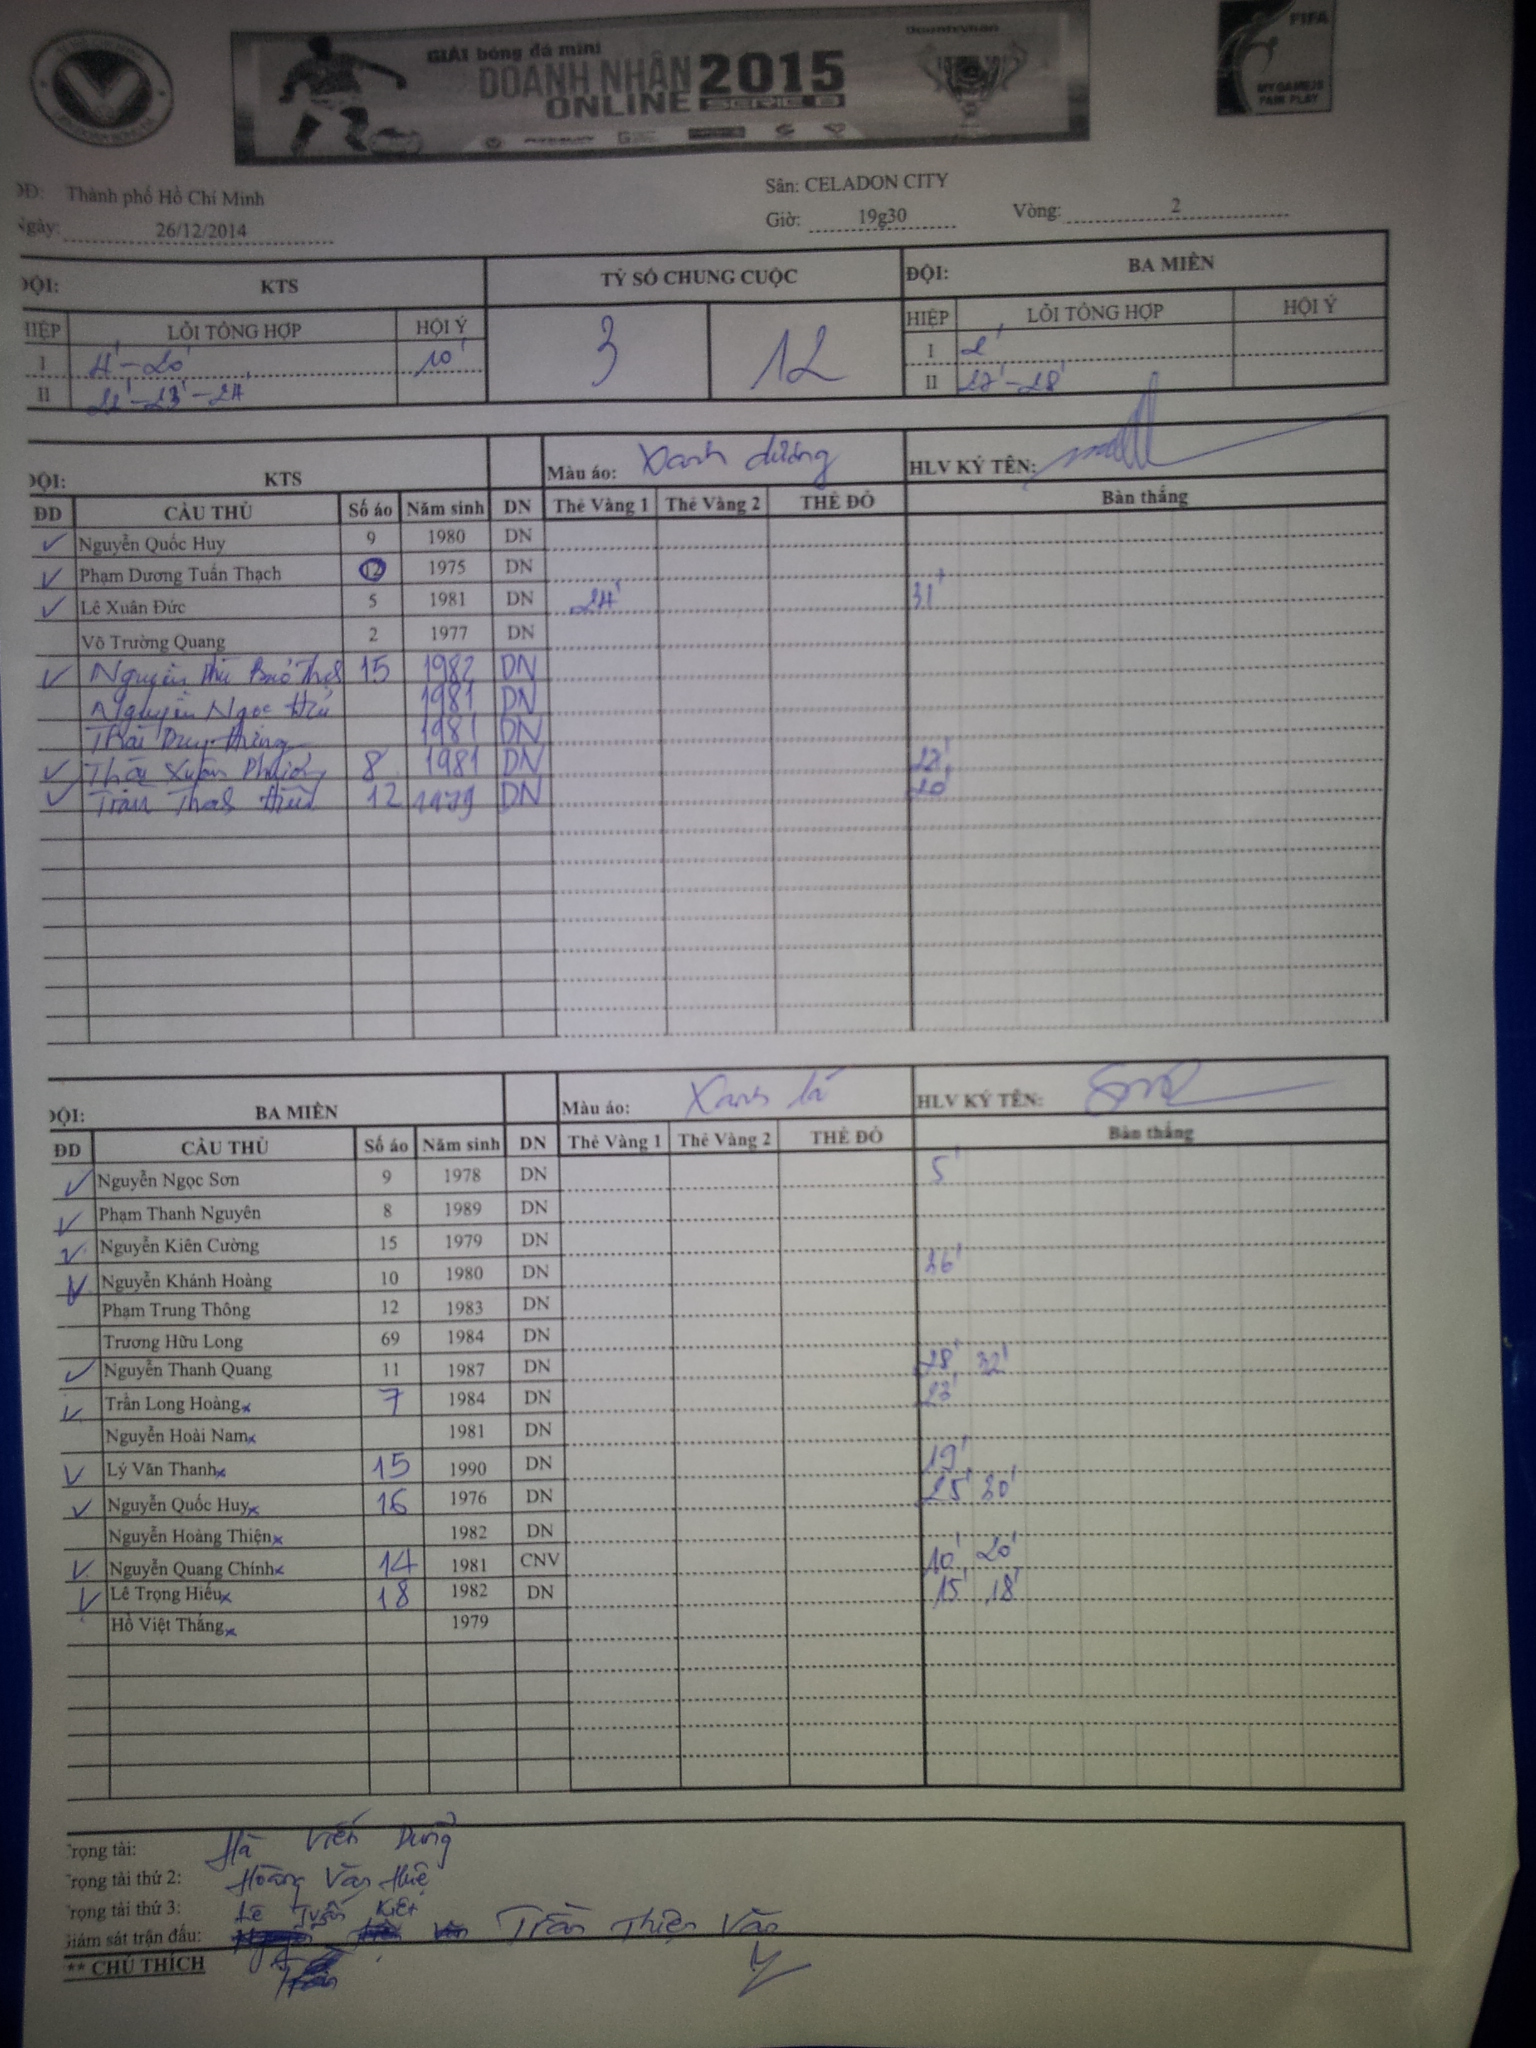 GIẢI bóng đá mini
DOANH NHÂN 2015
ONLINE SERIE B
FIFA
MY GAME IS
FAIR PLAY
Thành phố Hồ Chí Minh
Sân: CELADON CITY
26/12/2014
Giờ: 19g30
Vòng: 2
KTS
TỶ SỐ CHUNG CUỘC
ĐỘI: BA MIỀN
LỖI TỔNG HỢP HỘI Ý
3 12
HIỆP LỖI TỔNG HỢP HỘI Ý
I 4' - 20' 10'
I 2'
II 22' - 23' - 24'
II 27' - 28'
KTS Màu áo: Xanh dương HLV KÝ TÊN:
ĐD CẦU THỦ Số áo Năm sinh DN Thẻ Vàng 1 Thẻ Vàng 2 THẺ ĐỎ Bàn thắng
Nguyễn Quốc Huy 9 1980 DN
Phạm Dương Tuấn Thạch 12 1975 DN
Lê Xuân Đức 5 1981 DN 24' 31'
Võ Trường Quang 2 1977 DN
Nguyễn 15 1982 DN
Nguyễn Ngọc 1981 DN
Thái Duy 1981 DN
Xuân Phương 8 1981 DN
Trần 12 1979 DN 20'
BA MIỀN Màu áo: Xanh lá HLV KÝ TÊN:
ĐD CẦU THỦ Số áo Năm sinh DN Thẻ Vàng 1 Thẻ Vàng 2 THẺ ĐỎ Bàn thắng
Nguyễn Ngọc Sơn 9 1978 DN 5'
Phạm Thanh Nguyên 8 1989 DN
Nguyễn Kiên Cường 15 1979 DN
Nguyễn Khánh Hoàng 10 1980 DN 26'
Phạm Trung Thông 12 1983 DN
Trương Hữu Long 69 1984 DN
Nguyễn Thanh Quang 11 1987 DN 28' 32'
Trần Long Hoàng x 7 1984 DN 23'
Nguyễn Hoài Nam x 1981 DN
Lý Văn Thanh x 15 1990 DN 19'
Nguyễn Quốc Huy x 16 1976 DN 25' 30'
Nguyễn Hoàng Thiện x 1982 DN
Nguyễn Quang Chính x 14 1981 CNV 10' 20'
Lê Trọng Hiếu x 18 1982 DN 15' 18'
Hồ Việt Thắng x 1979
Hà Viến Dũng
tài thứ 2: Hoàng Văn
tài thứ 3: Lê Tuấn Kiệt
sát trận đấu: Trần Thiện Văn
** CHÚ THÍCH